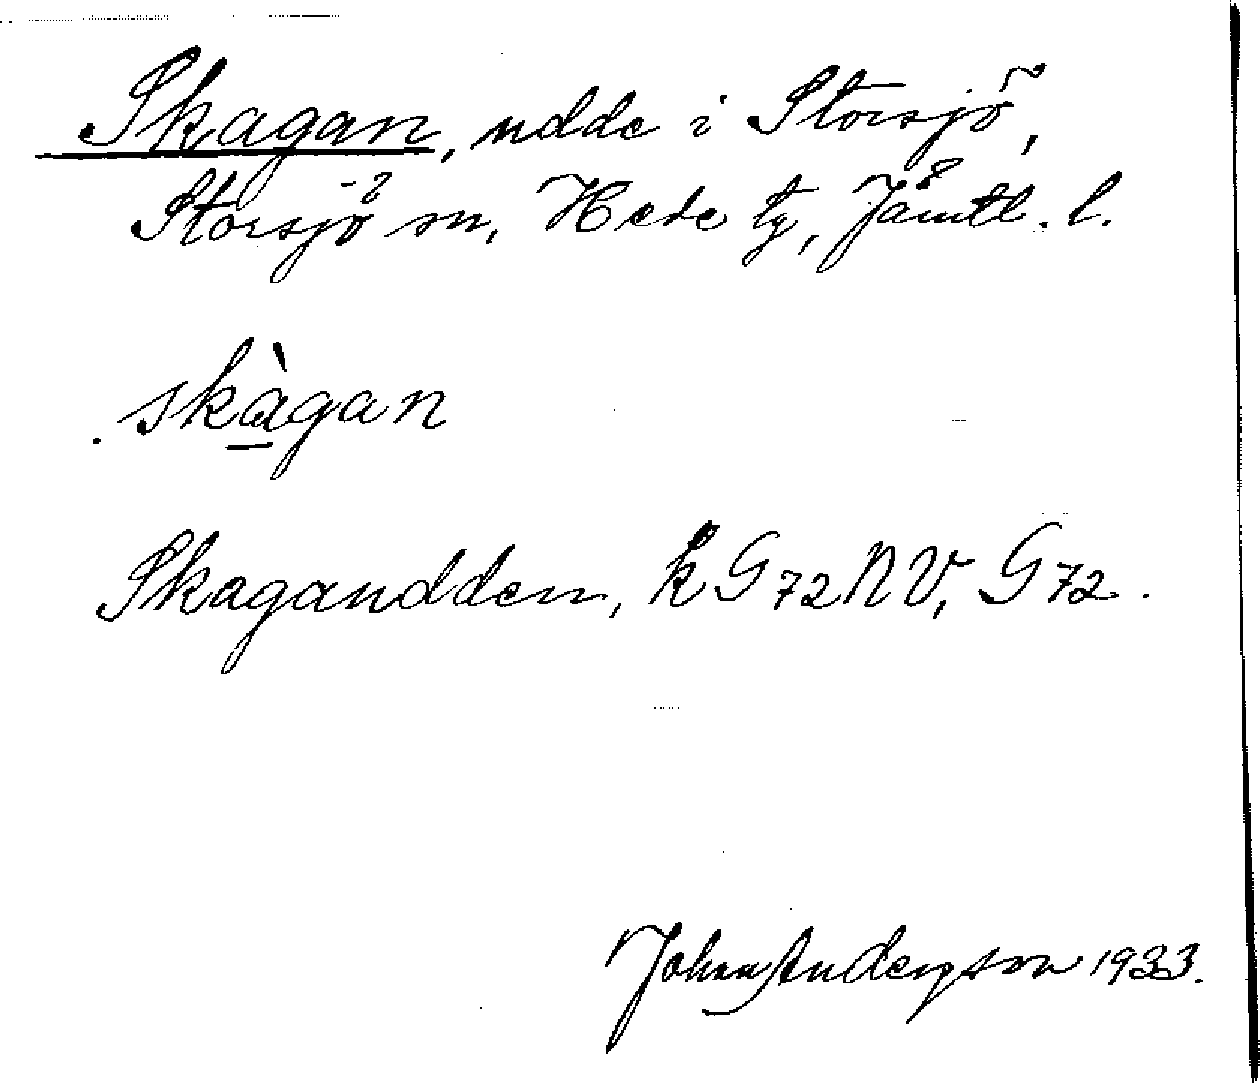 Skagan, udde i Storsjö,
Storsjö sn, Hede tg, Jämtl. l.
skàgan
Skagaudden, k G72NV, G72.
Johan Andersson 1933.